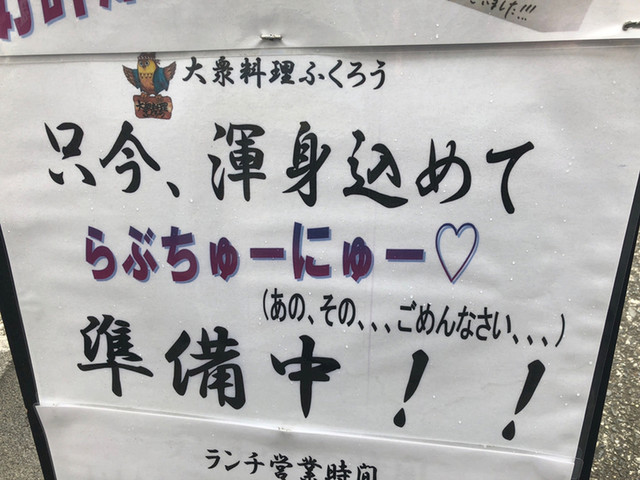 いました!!!
大衆料理ふくろう
只今、渾身込めて
らぶちゅーにゅー♡
(あの、その、、、ごめんなさい、、、)
準備中!!
ランチ営業時間